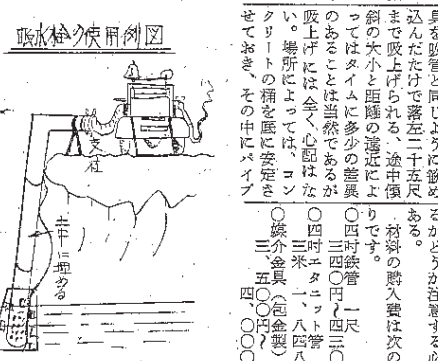 吸水栓の使用例図
支柱
土中に埋める
具を吸管と同じように嵌め
込んだだけで落左二十五尺
まで吸上げられる、途中傾
斜の大小と距離の遠近によ
つてはタイムに多少の差異
のあることは当然であるが
吸上げには全く心配はな
い。場所によつては、コン
クリートの桶を底に安定さ
せておき、その中にパイプ
るかどうか注意する
ある。
材料の購入費は次の
りです。
〇四吋鉄管 一尺
三四〇円〜四三〇
〇四吋エタニット管
三米 一、八四八
〇媒介金具(包金製)
三、五〇〇円〜
四、〇〇〇